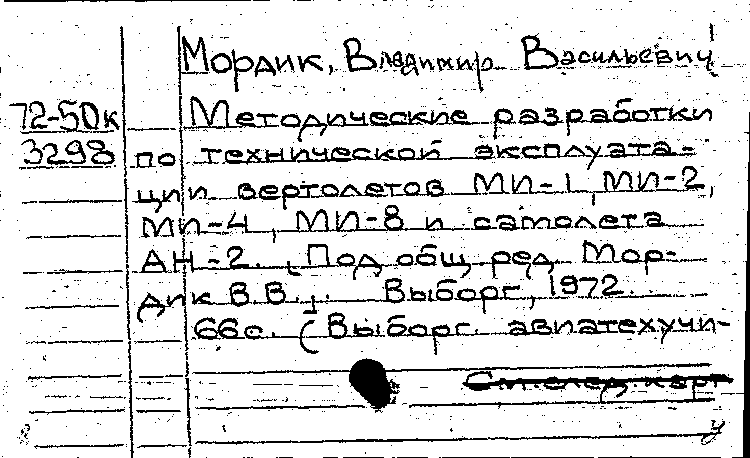 Мордик, Владимир Васильевич
72-50к Методические разработки
3298 по технической эксплуата-
ции вертолетов МИ-1, МИ-2,
МИ-4, МИ-8 и самолета
АН-2. Под общ. ред. Мор-
дик В.В. Выборг, 1972.
66с. (Выборг. авиатехучи-
См. след. карт